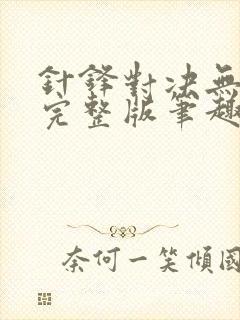 針鋒對決無
完整版筆趣
奈何一笑傾國